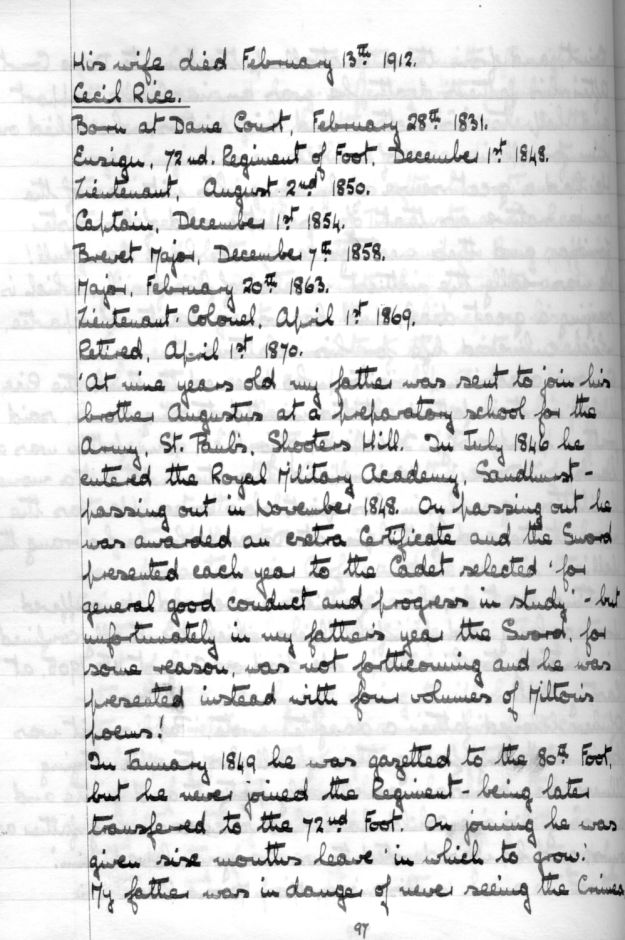 His wife died February 13th 1912.
Cecil Rice.
Born at Dane Court, February 28th 1831.
Ensign, 72nd. Regiment of Foot, December 1st 1848.
Lieutenant, August 2nd 1850.
Captain, December 1st 1854.
Brevet Major, December 7th 1858.
Major, February 20th 1863.
Lieutenant-Colonel, April 1st 1869.
Retired, April 1st 1870.
'At nine years old my father was sent to join his
brother Augustus at a preparatory school for the
Army, St. Paul's, Shooters Hill. In July 1846 he
entered the Royal Military Academy, Sandhurst -
passing out in November 1848. On passing out he
was awarded an extra Certificate and the Sword
presented each year to the Cadet selected 'for
general good conduct and progress in study' - but
unfortunately in my father's year the Sword, for
some reason, was not forthcoming and he was
presented instead with four volumes of Milton's
poems!
In January 1849 he was gazetted to the 80th Foot,
but he never joined the Regiment - being later
transferred to the 72nd Foot. On joining he was
given six months leave 'in which to grow.'
My father was in danger of never seeing the Crimea
97